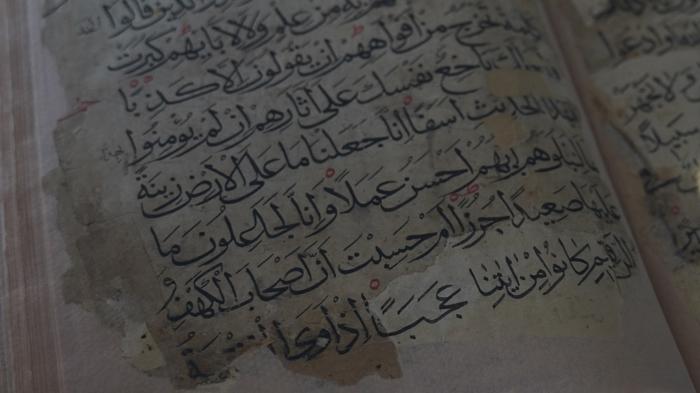 الذين قالوا
به من علم ولا لابايهم كبرت
كلمة تخرج من افواههم ان يقولون الا كذبا
باخع نفسك على اثارهم ان لم يؤمنوا
بهذا الحديث اسفا انا جعلنا ما على الارض زينة
لنبلوهم ايهم احسن عملا وانا لجاعلون ما
عليها صعيدا جرزا ام حسبت ان اصحاب الكهف و
الرقيم كانوا من ايتنا عجبا اذ اوى
سبيلا